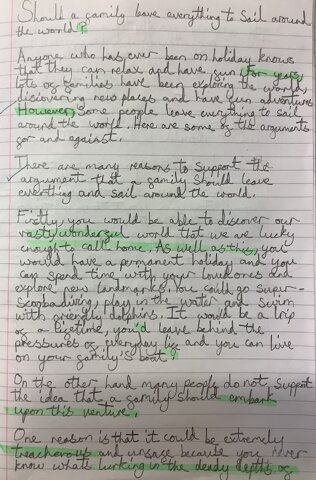 Should a family leave everything to sail around
the world?
Anyone who has ever been on holiday knows
that they can relax and have fun. For years,
lots of families have been exploring the world,
discovering new places and have fun adventures.
However, some people leave everything to sail
around the world. Here are some of the arguments
for and against.
There are many reasons to support the
argument that a family should leave
everthing and sail around the world.
Firstly, you would be able to discover our
vast, wonderful world that we are lucky
enough to call home. As well as this, you
would have a permanent holiday and you
can spend time with your lovedones and
explore new landmarks. You could go super-
scoobadiving, play in the water and swim
with friendly dolphins. It would be a trip
of a lifetime, you'd leave behind the
pressures of everyday life and you can live
on your family's boat!
On the other hand many people do not support
the idea that a family should embark
upon this venture.
One reason is that it could be extremely
treacherous and unsafe because you never
know whats lurking in the deadly depths of